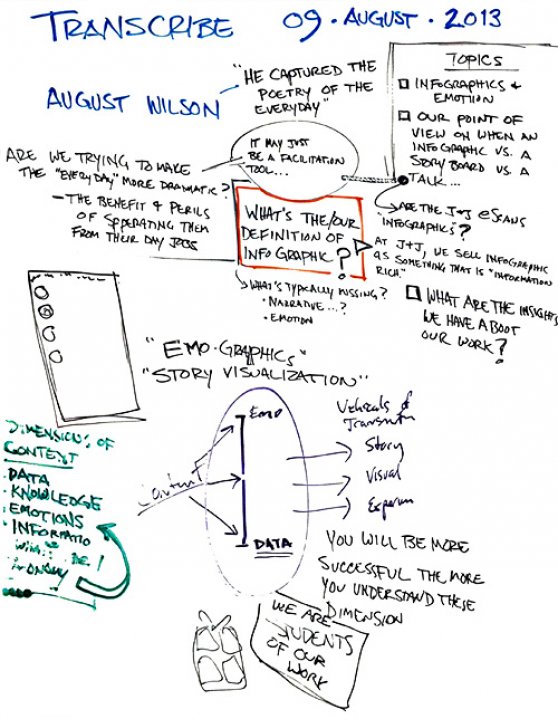 TRANSCRIBE 09 • AUGUST • 2013
AUGUST WILSON
"HE CAPTURED THE
POETRY OF THE
EVERYDAY"
TOPICS
INFOGRAPHICS &
EMOTION
OUR POINT OF
VIEW ON WHEN AN
INFOGRAPHIC VS. A
STORY BOARD VS. A
TALK...
ARE THE J+J eSCANS
"INFOGRAPHICS"?
AT J+J, WE SELL INFOGRAPHIC
AS SOMETHING THAT IS "INFORMATION
RICH."
WHAT ARE THE INSIGHTS
WE HAVE ABOOT
OUR WORK?
IT MAY JUST
BE A FACILITATION
TOOL...
ARE WE TRYING TO MAKE
THE "EVERYDAY" MORE DRAMATIC?
– THE BENEFIT & PERILS
OF SPPERATING THEM
FROM THEIR DAY JOBS
WHAT'S THE/OUR
DEFINITION OF
INFOGRAPHIC
?
WHAT'S TYPICALLY MISSING?
• NARRATIVE...?
• EMOTION
"EMO-GRAPHICS"
"STORY VISUALIZATION"
DIMENSIONS OF
CONTEXT
• DATA
• KNOWLEDGE
• EMOTIONS
• INFORMATIO
Content
EMO
DATA
Story
Visual
YOU WILL BE MORE
SUCCESSFUL THE MORE
YOU UNDERSTAND THESE
DIMENSION
WE ARE
STUDENTS
OF OUR
WORK